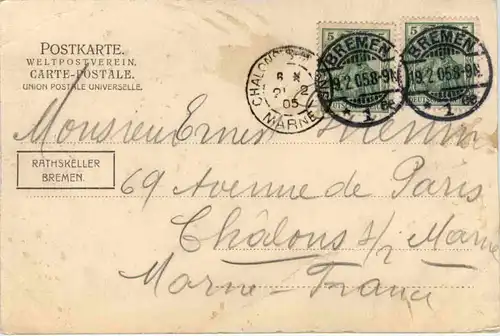 POSTKARTE.
WELTPOSTVEREIN.
CARTE-POSTALE.
UNION POSTALE UNIVERSELLE.
5
5
BREMEN
19.2.05.8-9
1
BREMEN
19.2.05.8-9
1
CHALONS
2
05
MARNE
Monsieur Ernest
RATHSKELLER
BREMEN.
69 Avenue de Paris
Châlons s/ Marne
Marne-France